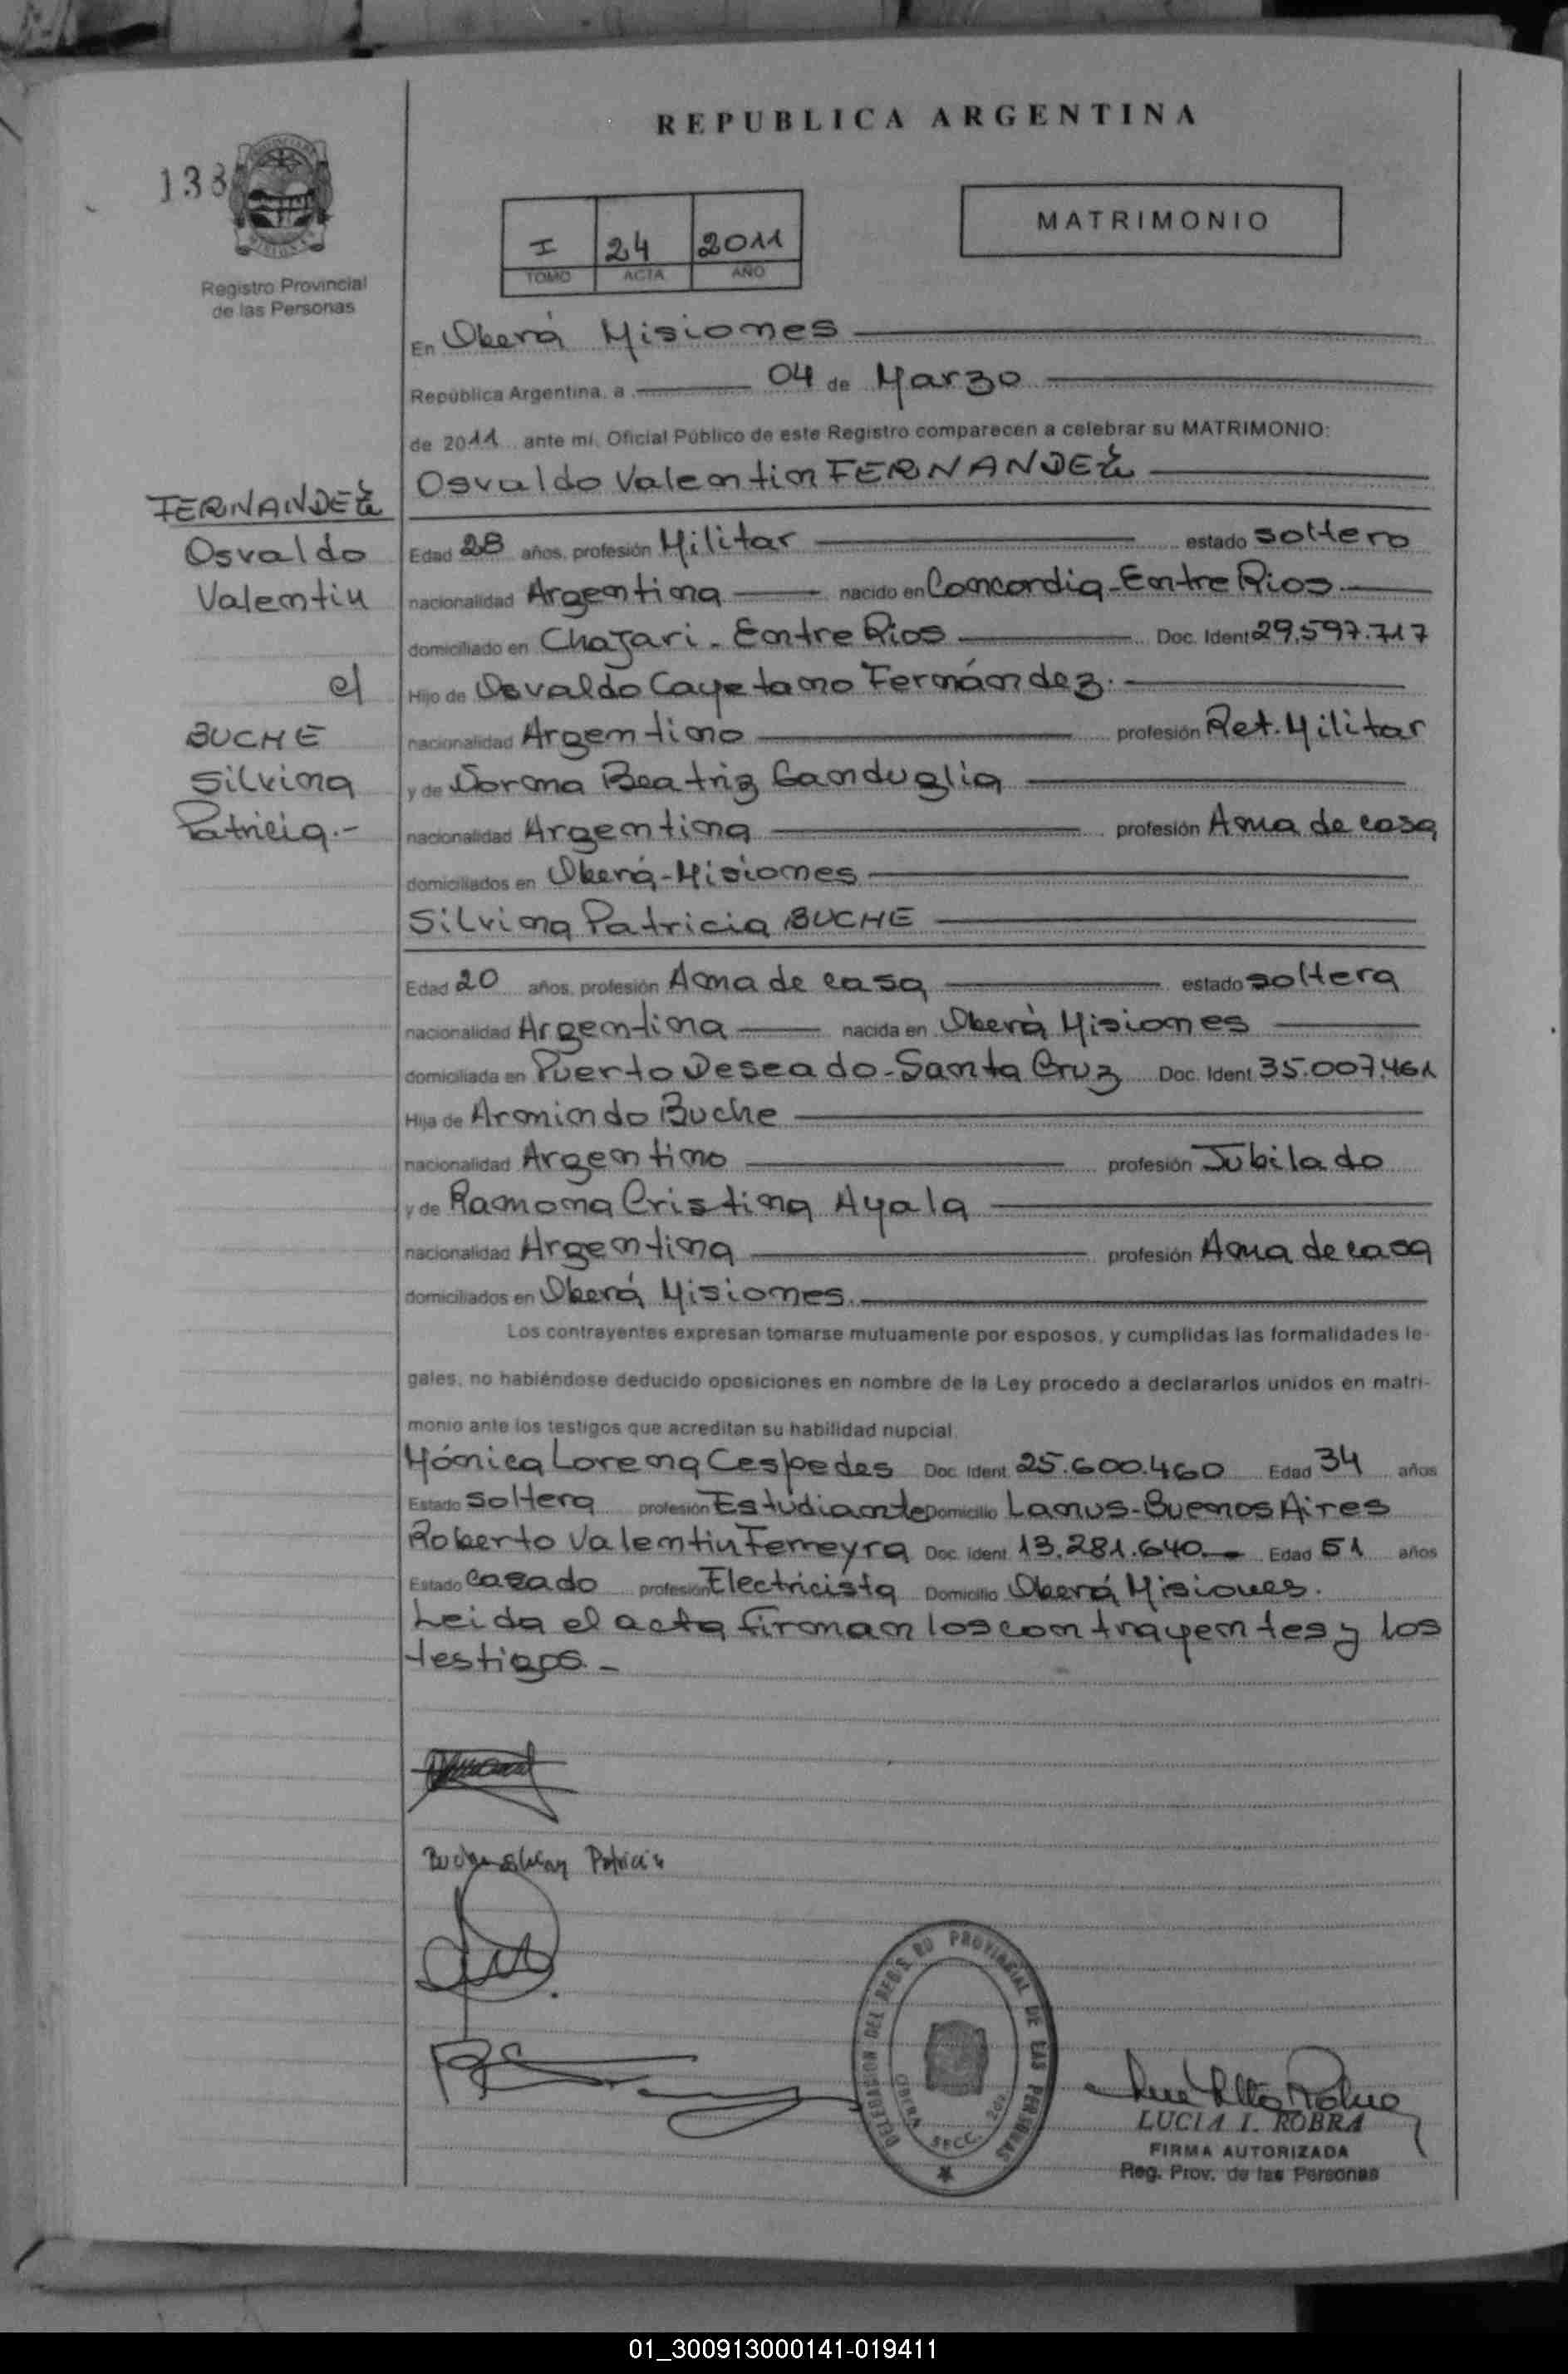 REPUBLICA ARGENTINA
138
Registro Provincial
de las Personas
I 24 2011
TOMO ACTA AÑO
MATRIMONIO
En Oberá Misiones
República Argentina, a 04 de Marzo
de 2011 ante mí, Oficial Público de este Registro comparecen a celebrar su MATRIMONIO:
Osvaldo Valentin FERNANDEZ
FERNANDEZ
Osvaldo
Valentin
c/
BUCHE
Silvina
Patricia.-
Edad 28 años, profesión Militar estado soltero
nacionalidad Argentina nacido en Concordia-Entre Rios
domiciliado en Chajari - Entre Rios Doc. Ident 29.597.717
Hijo de Osvaldo Cayetano Fernández.
nacionalidad Argentino profesión Ret. Militar
y de Norma Beatriz Ganduglia
nacionalidad Argentina profesión Ama de casa
domiciliados en Oberá-Misiones
Silvina Patricia BUCHE
Edad 20 años, profesión Ama de casa estado soltera
nacionalidad Argentina nacida en Oberá Misiones
domiciliada en Puerto Deseado-Santa Cruz Doc. Ident 35.007.461
Hija de Armindo Buche
nacionalidad Argentino profesión Jubilado
y de Ramona Cristina Ayala
nacionalidad Argentina profesión Ama de casa
domiciliados en Oberá Misiones.
Los contrayentes expresan tomarse mutuamente por esposos, y cumplidas las formalidades le-
gales, no habiéndose deducido oposiciones en nombre de la Ley procedo a declararlos unidos en matri-
monio ante los testigos que acreditan su habilidad nupcial.
Mónica Lorena Cespedes Doc. Ident. 25.600.460 Edad 34 años
Estado soltera profesión Estudiante Domicilio Lanus-Buenos Aires
Roberto Valentin Ferreyra Doc. Ident. 13.281.640.- Edad 51 años
Estado casado profesión Electricista Domicilio Oberá Misiones.
Leida el acta firman los contrayentes y los
testigos.-
Buche Silvina Patricia
DELEGACION DEL REGISTRO PROVINCIAL DE LAS PERSONAS
OBERA SECC.
LUCIA I. ROBRA
FIRMA AUTORIZADA
Reg. Prov. de las Personas
01_300913000141-019411